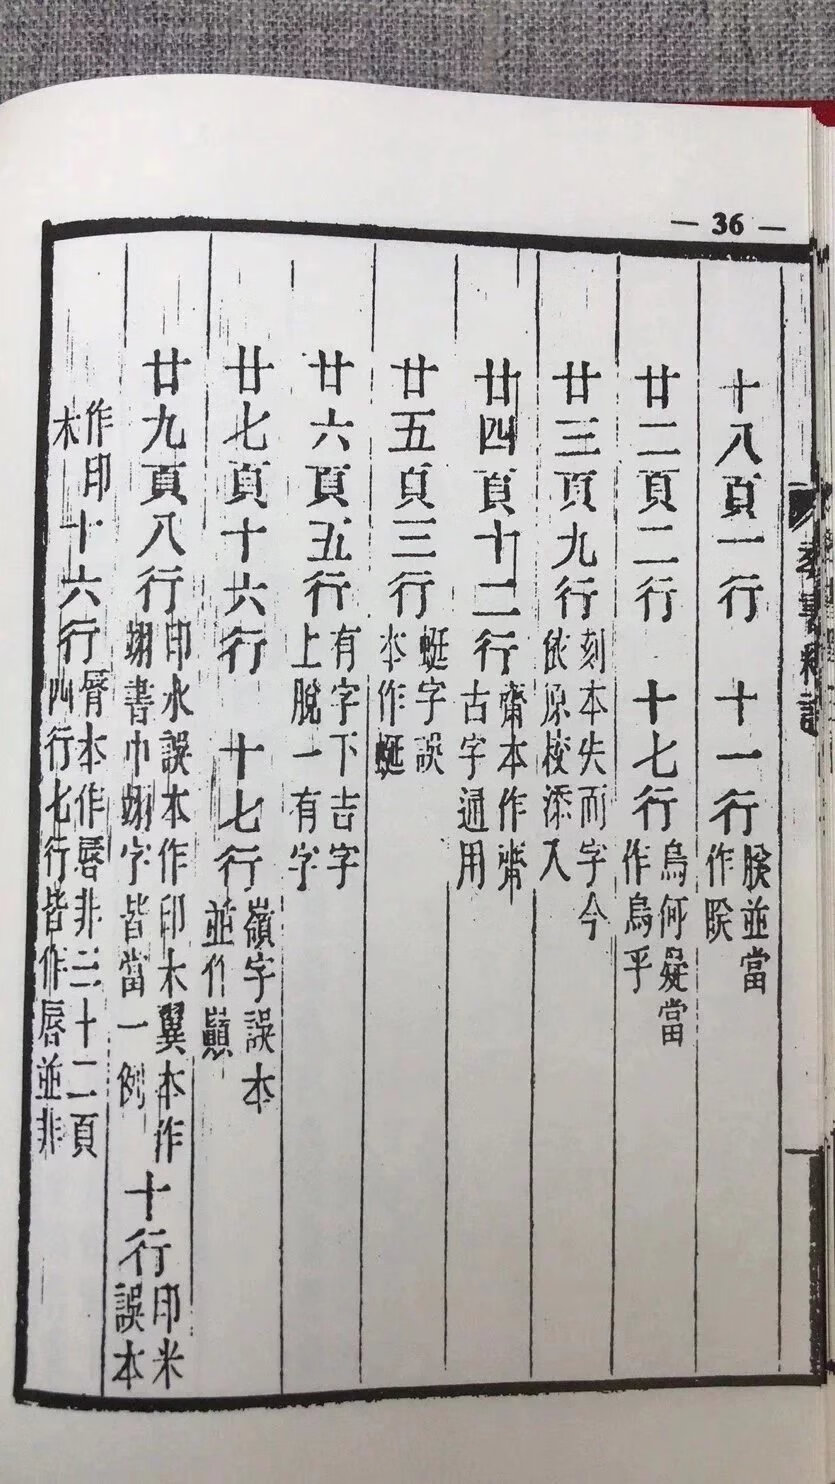 — 36 —
十八頁一行 十一行 䐅並當作睽
廿二頁二行 十七行 烏何疑當作烏乎
廿三頁九行 刻本失而字今依原校添入
廿四頁十二行 齋本作齊古字通用
廿五頁三行 蜓字誤本作蜒
廿六頁五行 有字下吉字上脫一有字
廿七頁十六行 十七行 嶺字誤本並作巔
廿九頁八行 印水誤本作印木翼本作翊書巾翊字皆當一例 十行 印米誤本
作印木 十六行 脣本作唇非三十二頁四行七行皆作唇並非